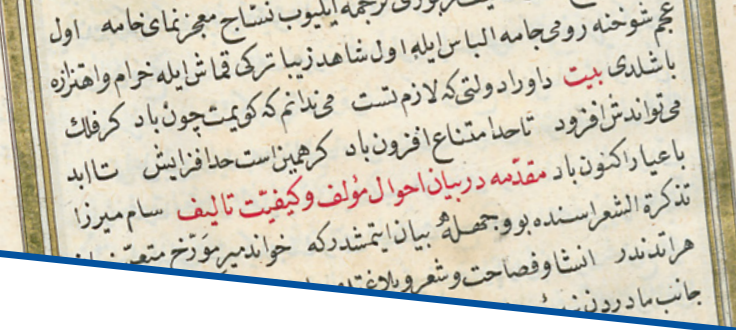 ترجمه ایلیوب نساج معجزنمای خامه اول
عجم شوخنه رومی جامه الباس ایله اول شاهد زیبا ترکی قماش ایله خرام و اهتزازه
باشلدی بیت داورا دولتی که لازم تست می ندانم که کویمت چون باد کر فلک
می تواندش افزود تا حد امتناع افزون باد کر همین است حد افزایش تا ابد
با عیار اکنون باد مقدمه در بیان احوال مؤلف و کیفیت تالیف سام میرزا
تذکرة الشعراسنده بو وجهله بیان ایتمشدر که خواندمیر مورخ
هراتدندر انشا و فصاحت و شعر و بلاغتده
جانب مادردن